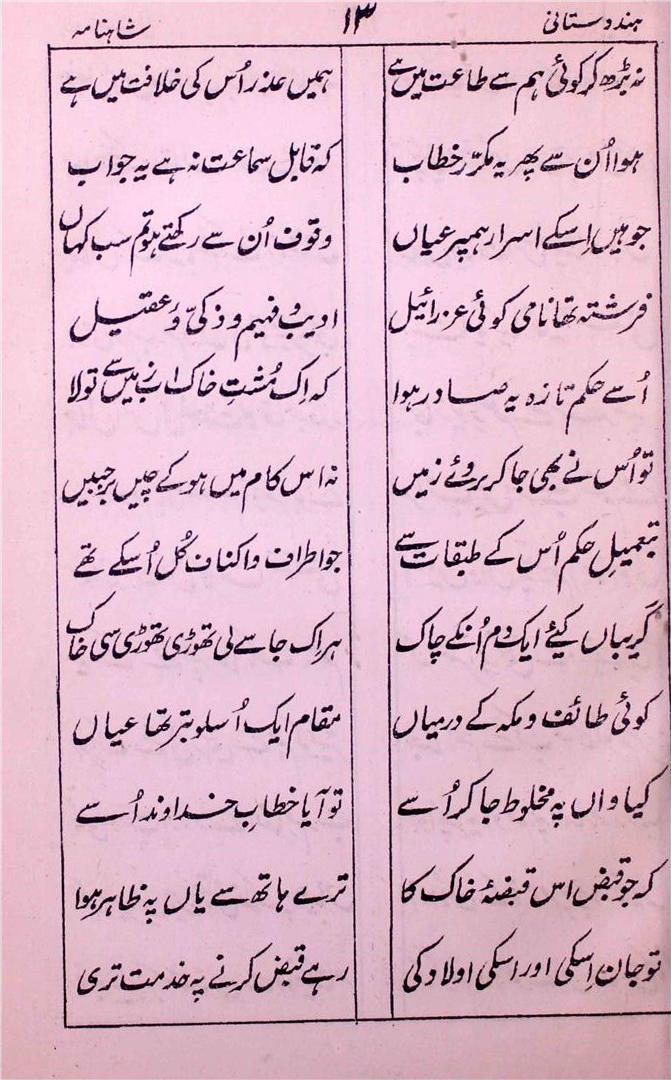 ہندوستانی ۱۳ شاہنامہ
نہ بڑھ کر کوئی ہم سے طاعت میں ہے ہمیں عذر اُس کی خلافت میں ہے
ہوا اُن سے پھر یہ مکرّر خطاب کہ قابل سماعت نہ ہے یہ جواب
جو ہیں اِسکے اسرار ہمپر عیاں وقوف اُن سے رکھتے ہو تم سب کہاں
فرشتہ تھا نامی کوئی عزرائیل ادیب و فہیم و ذکیّ و عقیل
اُسے حکم تازہ یہ صادر ہوا کہ اِک مُشتِ خاک اب زمیں سے تو لا
تو اُس نے بھی جا کر بروئے زمیں نہ اس کام میں ہو کے چیں بر جبیں
بتعمیلِ حکم اُس کے طبقات سے جو اطراف و اکناف کُل اُسکے تھے
گریباں کیئے ایک دم اُنکے چاک ہر اک جا سے لی تھوڑی تھوڑی سی خاک
کوئی طائف و مکہ کے درمیاں مقام ایک اُسلوبتر تھا عیاں
کیا واں پہ مخلوط جا کر اُسے تو آیا خطابِ خداوند اُسے
کہ جو قبض اس قبضۂ خاک کا ترے ہاتھ سے یاں پہ ظاہر ہوا
تو جان اِسکی اور اسکی اولاد کی رہے قبض کرنے پہ خدمت تری